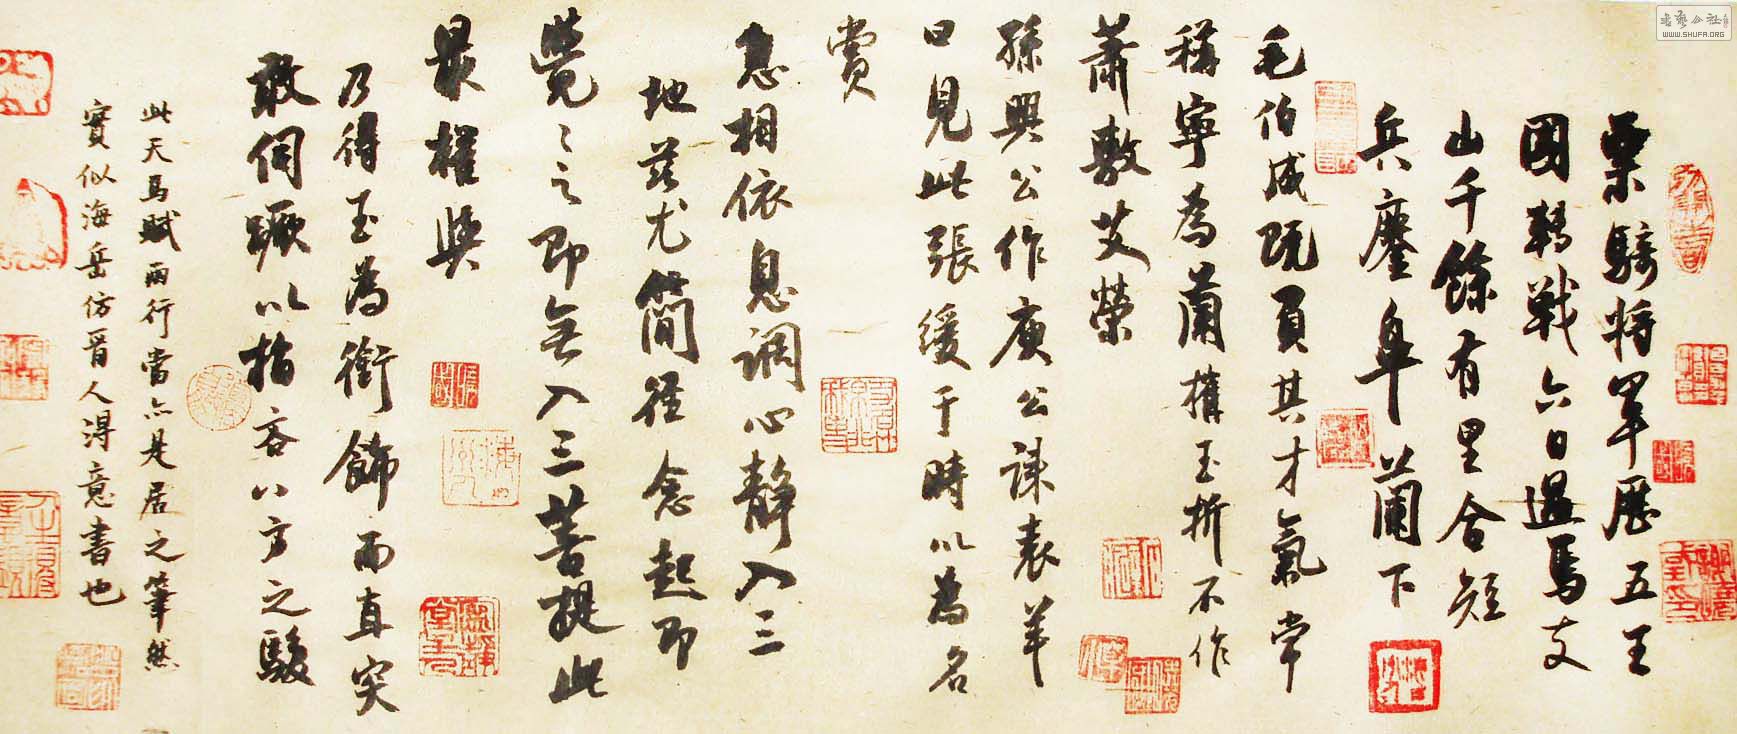 票騎將軍歷五王
國轉戰六日過焉支
山千餘有里合短
兵鏖皋蘭下
毛伯成既負其才氣常
稱寧為蘭摧玉折不作
蕭敷艾榮
孫興公作庾公誄表羊
曰見此張緩于時以為名
賞
息相依息調心靜入三
地茲尤簡徑念起即
覺之即無入三菩提此
最權輿
乃得玉為銜飾而直突
敢伺蹶以指吝八方之駿
此天馬賦兩行當亦是居之筆然
實似海岳仿晉人得意書也
書藝公社
WWW.SHUFA.ORG